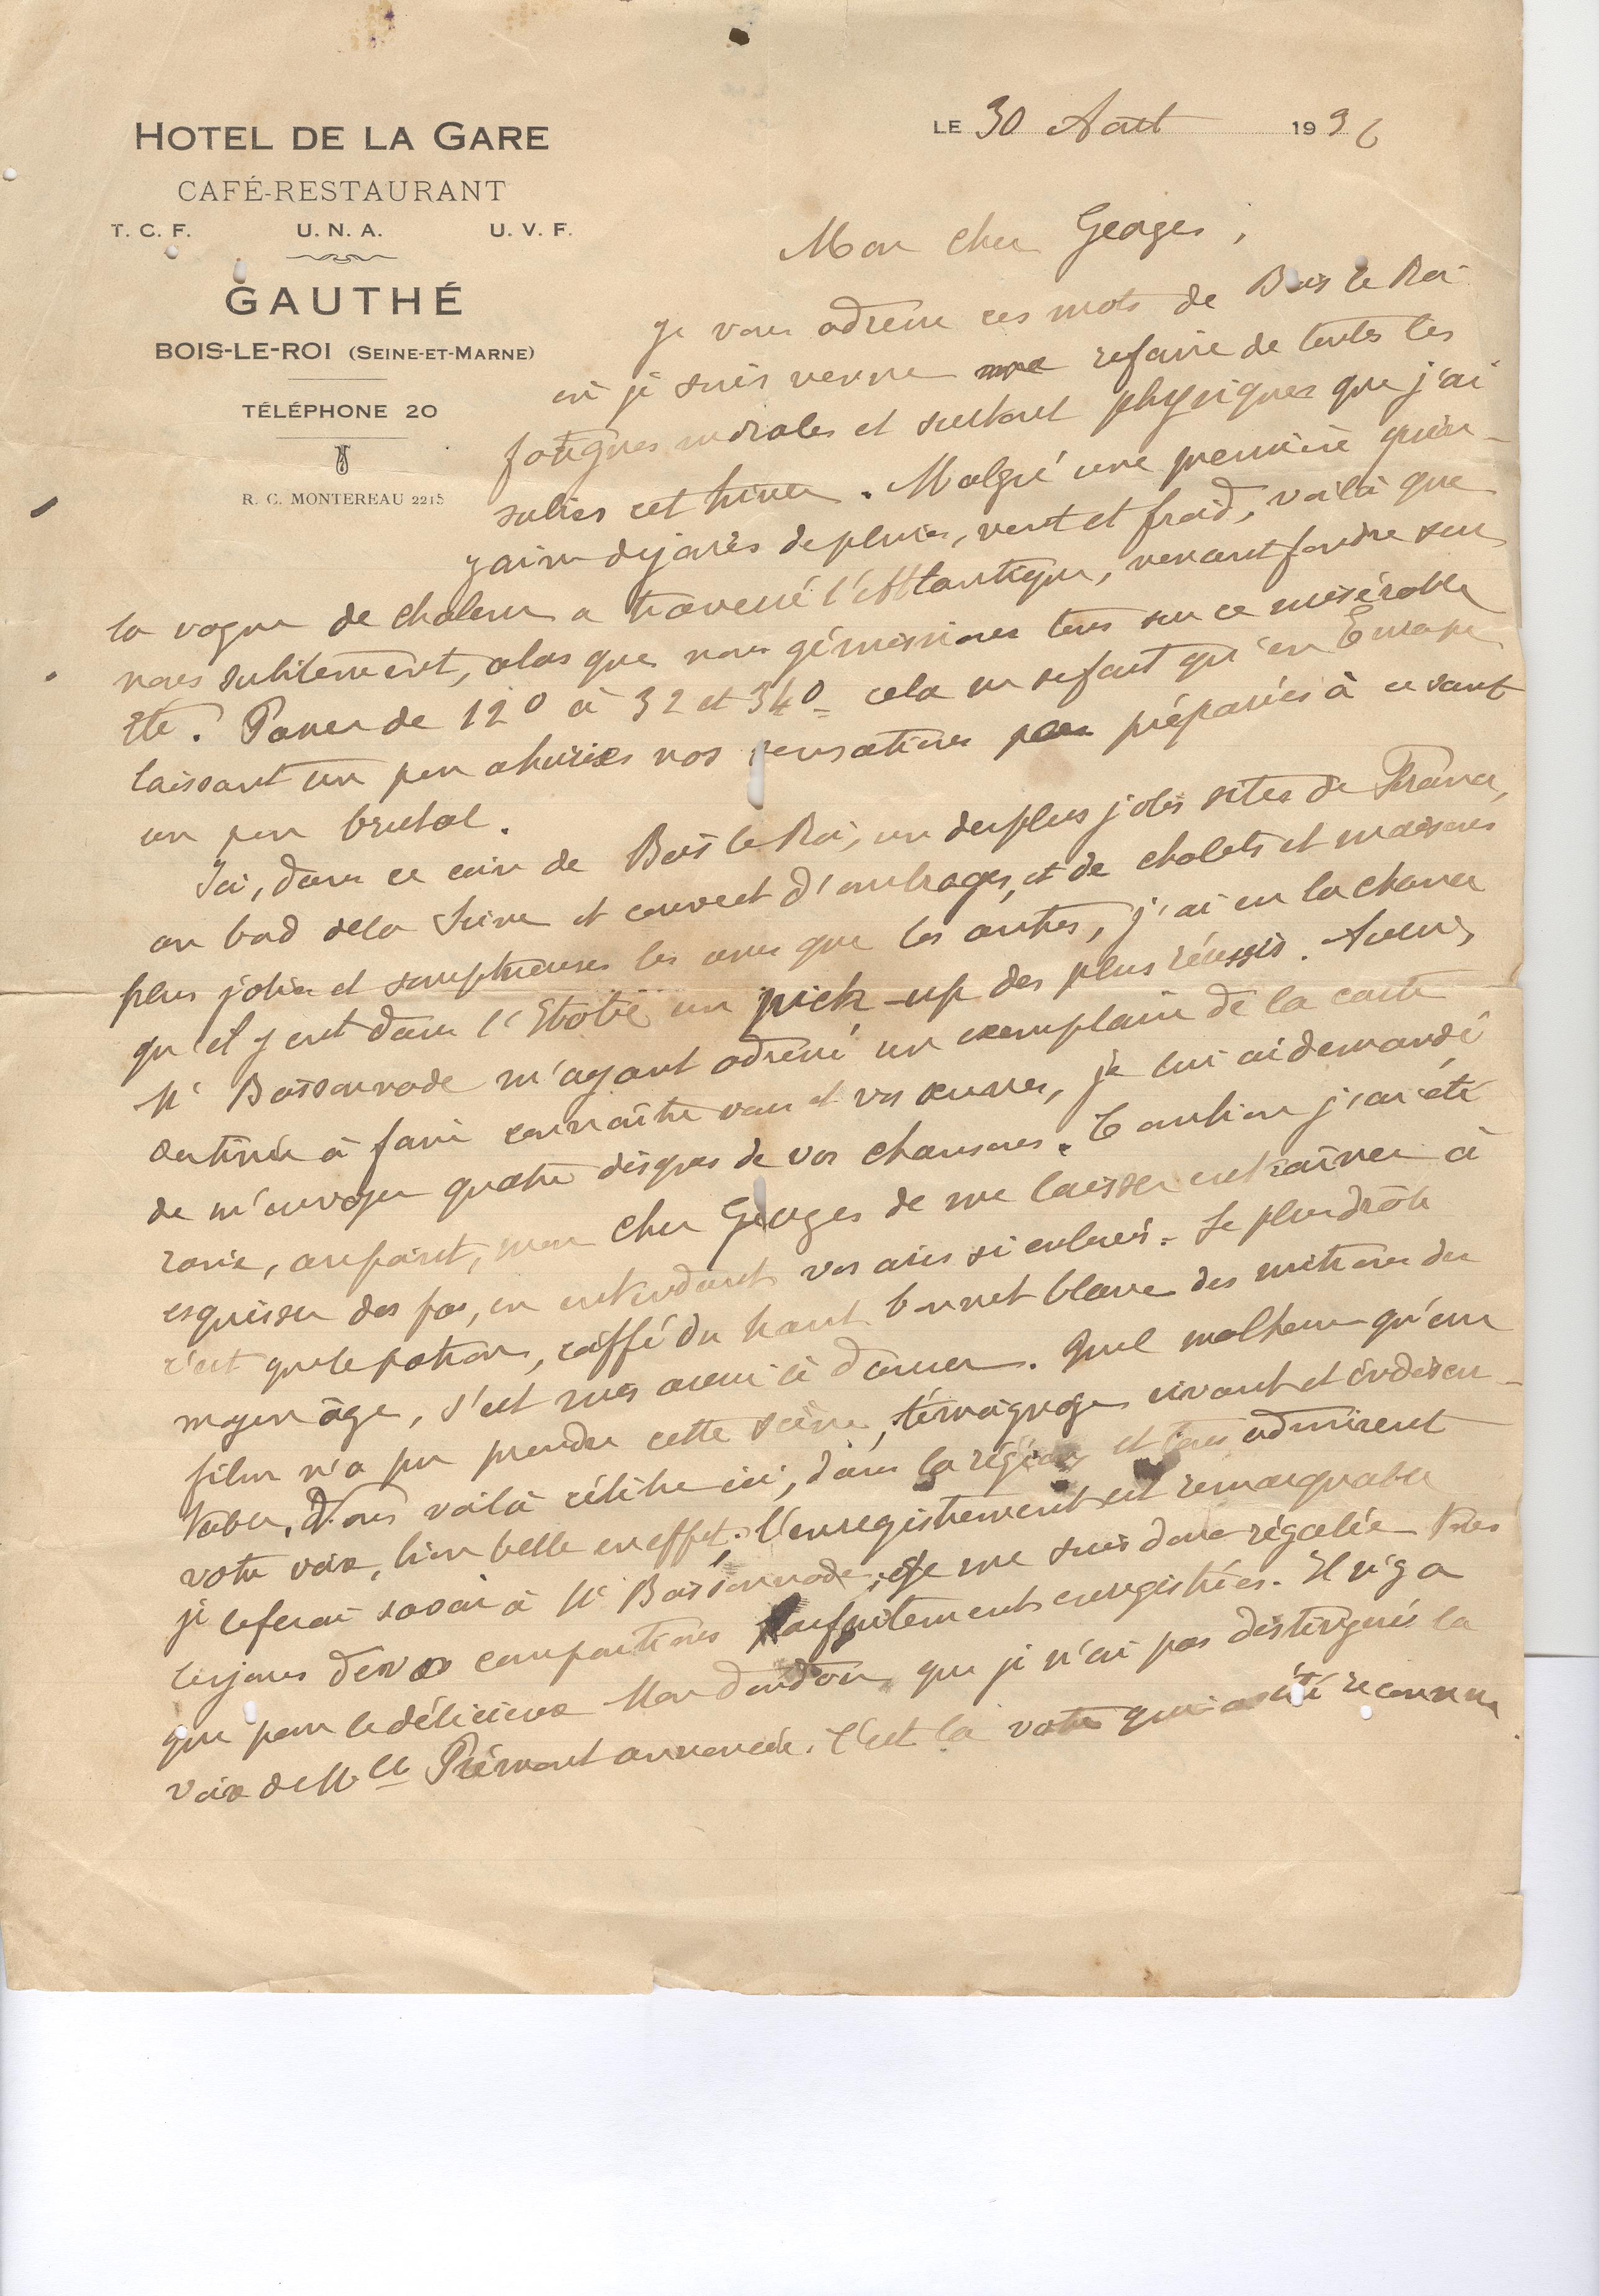 HOTEL DE LA GARE
CAFÉ-RESTAURANT
T. C. F. U. N. A. U. V. F.
GAUTHÉ
BOIS-LE-ROI (SEINE-ET-MARNE)
TÉLÉPHONE 20
R. C. MONTEREAU 2215
LE 30 Août 1936
Mon cher Georges,
je vous adresse ces mots de Bois le Roi
où je suis venue me refaire de toutes les
fatigues morales et surtout physiques que j'ai
subies cet hiver. Malgré une première quin-
zaine de jours de pluie, vent et froid, voilà que
la vague de chaleur a traversé l'Atlantique, venant fondre sur
nous subitement, alors que nous gémissions tous sur ce misérable
été. Passer de 12° à 32 et 34° cela ne se fait qu'en Europe
laissant un peu ahuries nos sensations peu préparées à ce saut
un peu brutal.
Ici, dans ce coin de Bois le Roi, un des plus jolis sites de France,
au bord de la Seine et couvert d'ombrages, et de chalets et maisons
plus jolies et somptueuses les unes que les autres, j'ai eu la chance
qu'il y eut dans l'Hôtel un pick-up des plus réussis.
Mr Boissonnade m'ayant adressé un exemplaire de la carte
destinée à faire connaître vous et vos œuvres, je lui ai demandé
de m'envoyer quatre disques de vos chansons. Combien j'ai été
ravie, au point, mon cher Georges de me laisser entraîner à
esquisser des pas, en entendant vos airs si enlevés. Le plus drôle
c'est que le patron, coiffé du haut bonnet blanc des mitrons du
moyen âge, s'est mis aussi à danser. Quel malheur qu'un
film n'a pu prendre cette scène, témoignage vivant et indiscu-
table. Vous voilà célèbre ici, dans la région et tous admirent
votre voix, bien belle en effet; l'enregistrement est remarquable
je le ferai savoir à Mr Boissonnade. Je me suis donc régalée tous
les jours de vos compositions parfaitement enregistrées. Il n'y a
que pour le délicieux Mon dondon que je n'ai pas distingué la
voix de Melle Prémont annoncée. C'est la votre qui a été reconnue